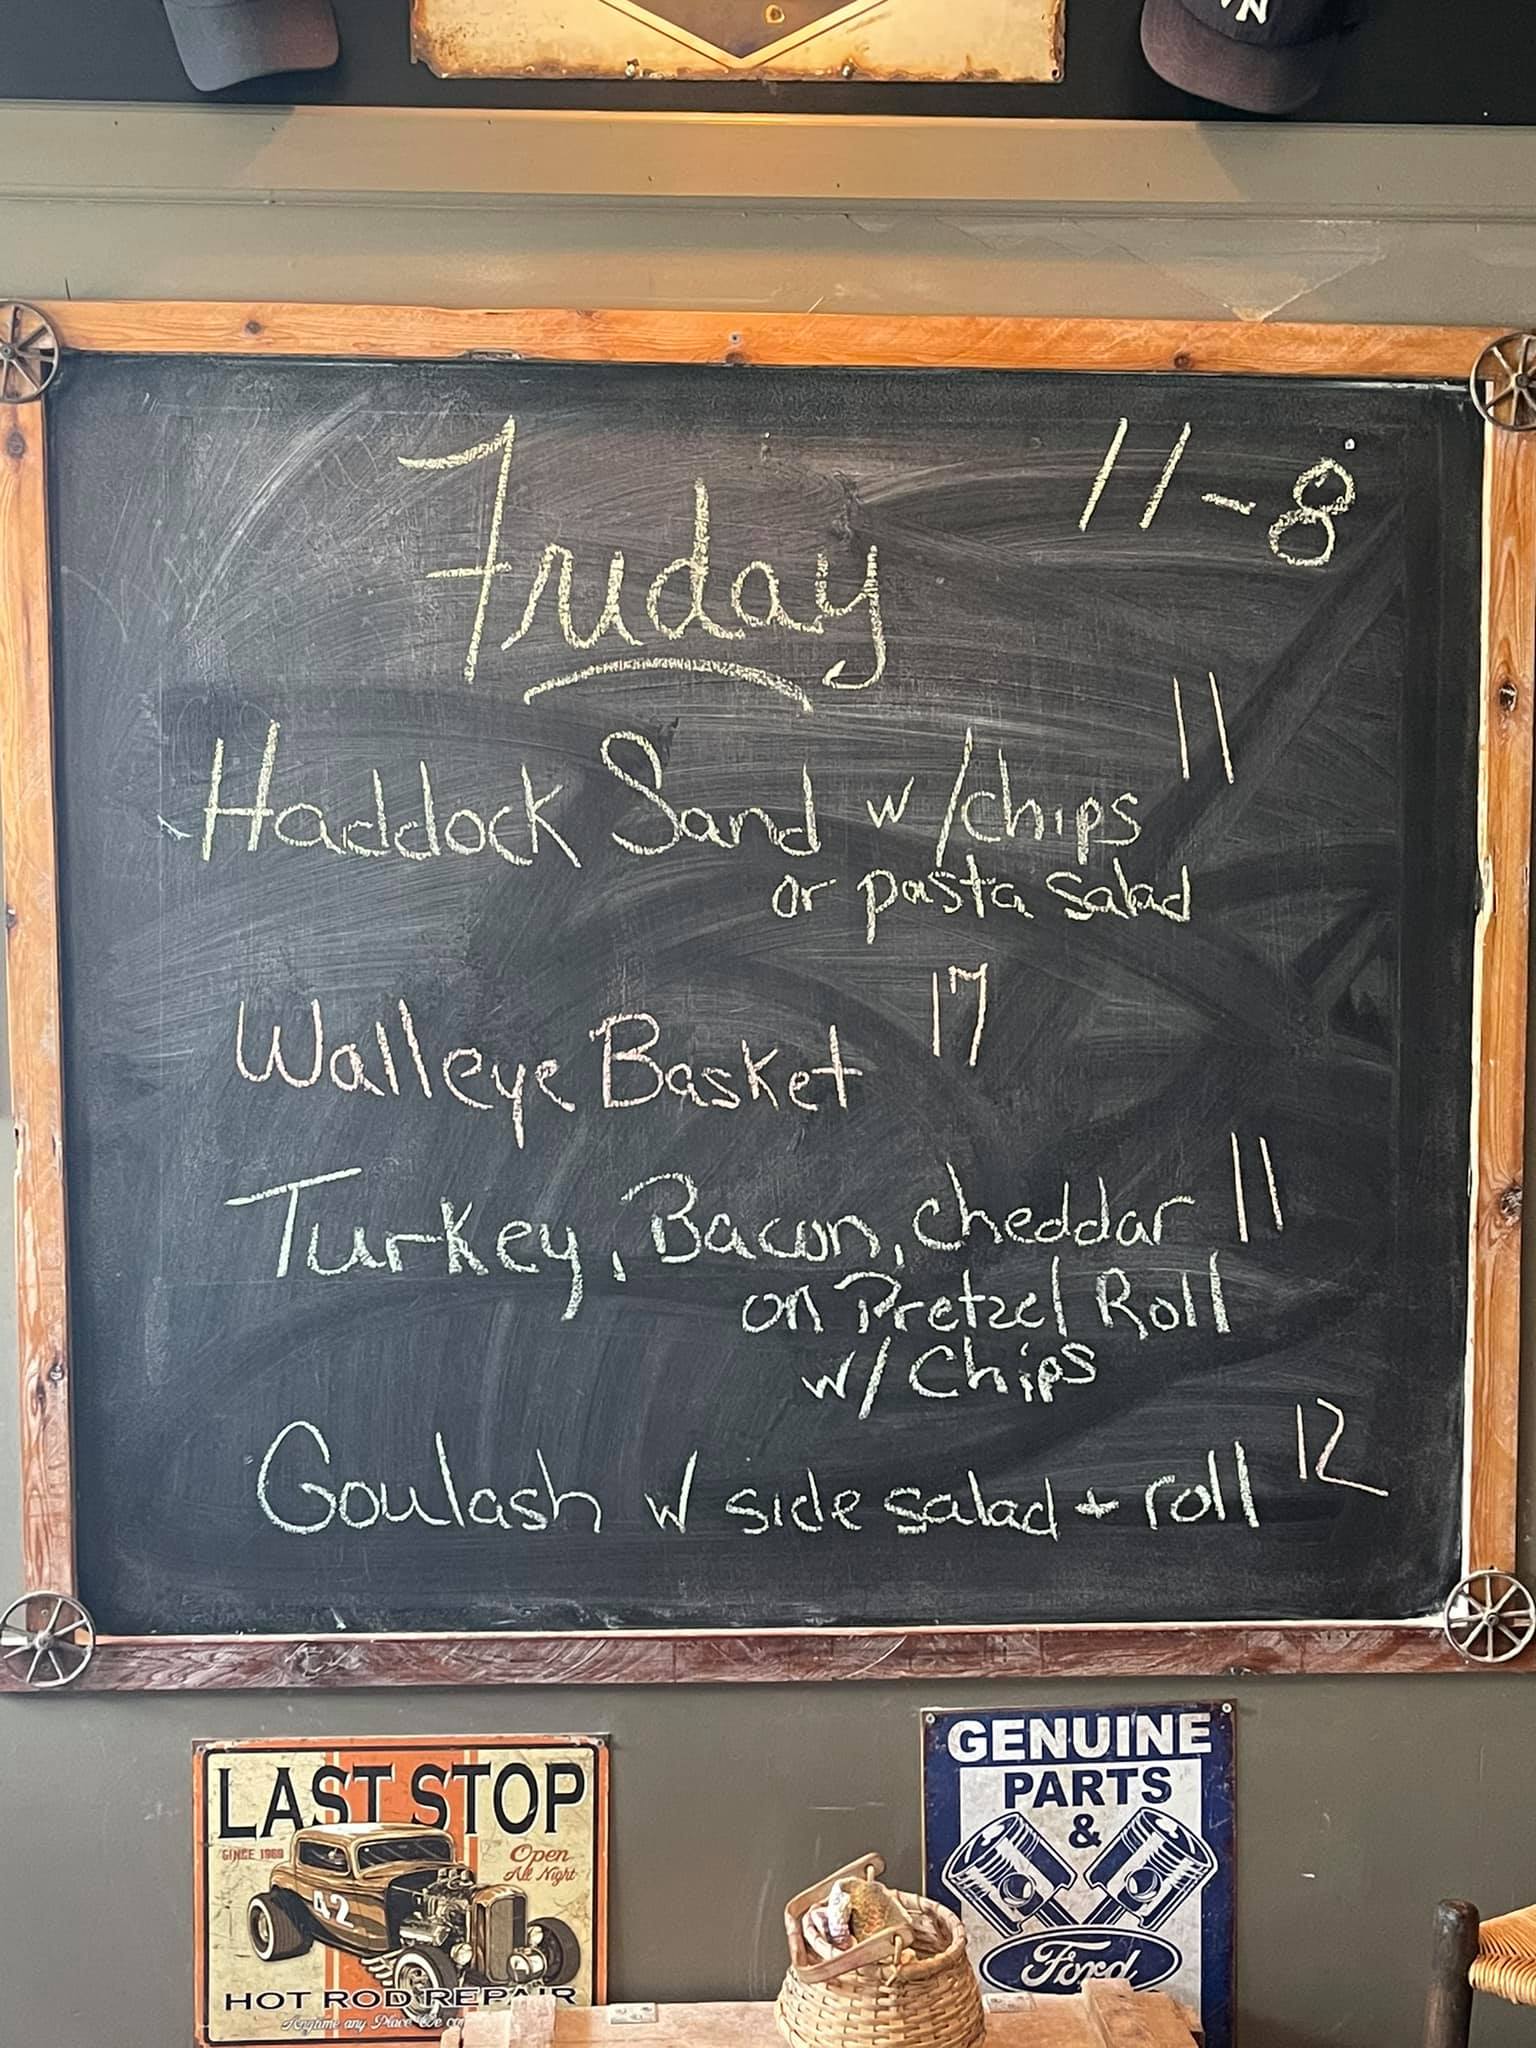 Friday 11-8
Haddock Sand w/chips 11
or pasta salad
Walleye Basket 17
Turkey, Bacon, cheddar 11
on Pretzel Roll
w/ Chips
Goulash w/ side salad + roll 12
LAST STOP
SINCE 1960
Open
All Night
42
HOT ROD REPAIR
Anytime any Place We
GENUINE
PARTS
&
Ford